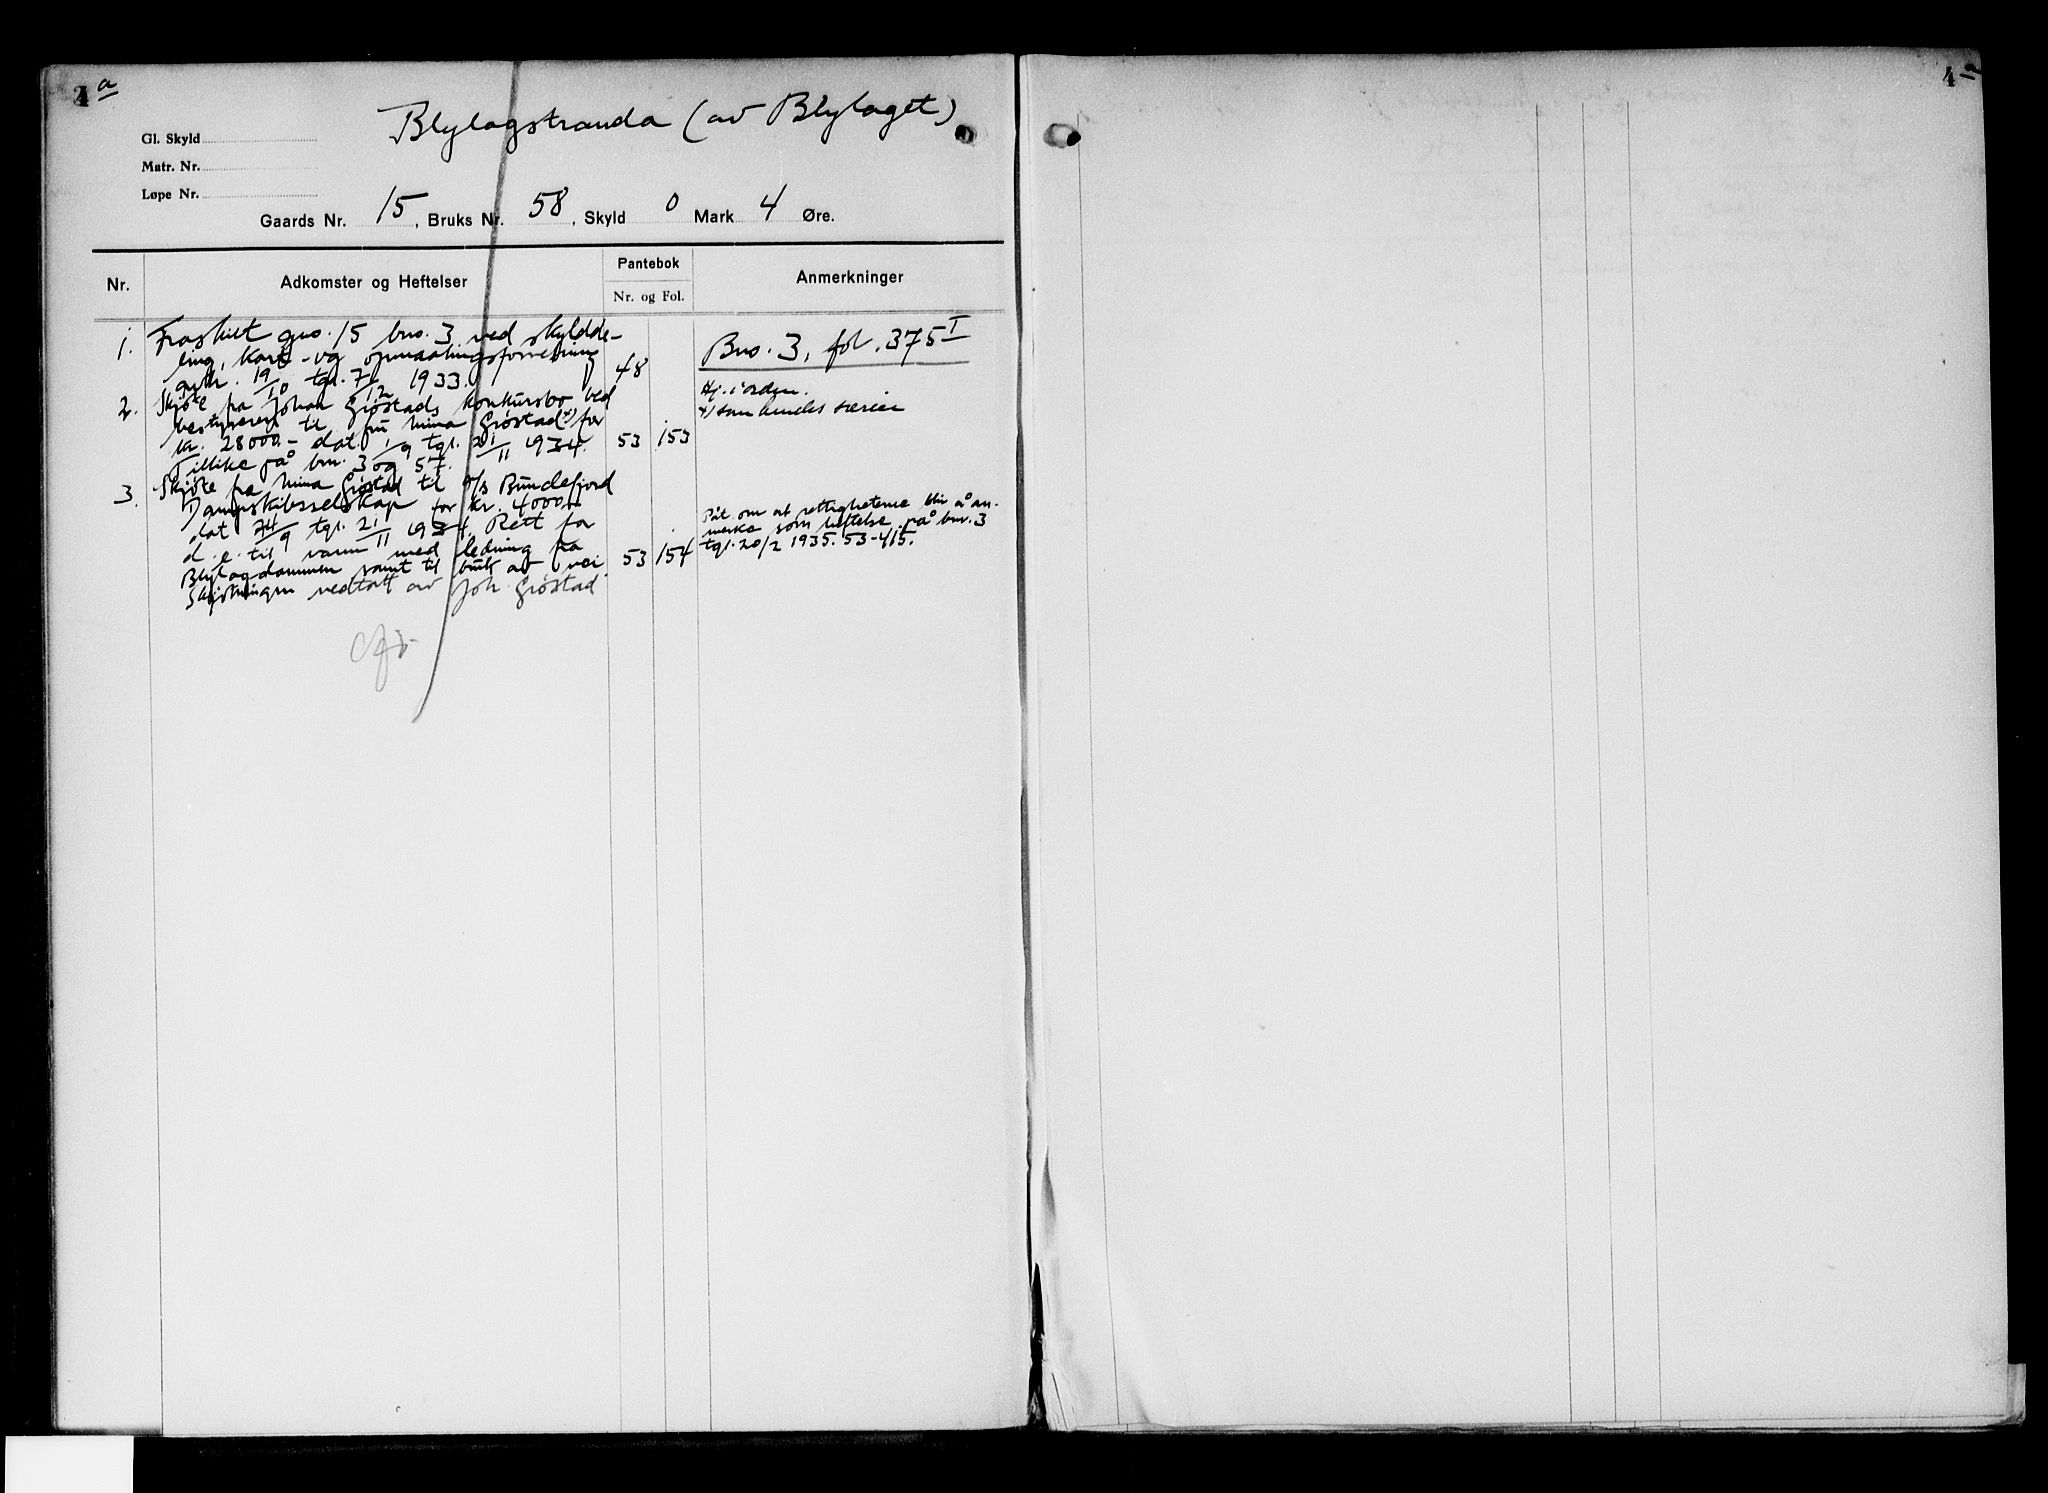 4 a
4 a
Blylagstranda (av Blylaget)
Gl. Skyld
Matr. Nr.
Løpe Nr.
Gaards Nr. 15, Bruks Nr. 58, Skyld 0 Mark 4 Øre.
Nr.
Adkomster og Heftelser
Pantebok
Nr. og Fol.
Anmerkninger
1. Fraskilt gno. 15 bno. 3 ved skyldde-
ling, kart- og opmaalingsforretning
19/10 tgl. 7/12 1933. 48
Bno. 3, fol. 375 I
2. Skjøte fra Johan Grøstads konkursbo ved
bestyreren til fru Mina Grøstad x) for
kr. 28000.- dat. 1/9 tgl. 21/11 1934.
Tillike på bnr. 3 og 57. 53 153
Hj. i orden.
x) som hendes særeie
3. Skjøte fra Mina Grøstad til A/S Bundefjord
Dampskibsselskap for kr. 4000.-
dat 24/9 tgl. 21/11 1934. Rett for
d. e. til vann med ledning fra
Blylagdammen samt til bruk av vei. 53 154
Skjøtningen vedtatt av Joh. Grøstad
Påt. om at rettighetene blir å an-
merke som heftelse på bnr. 3
tgl. 20/2 1935. 53-415.